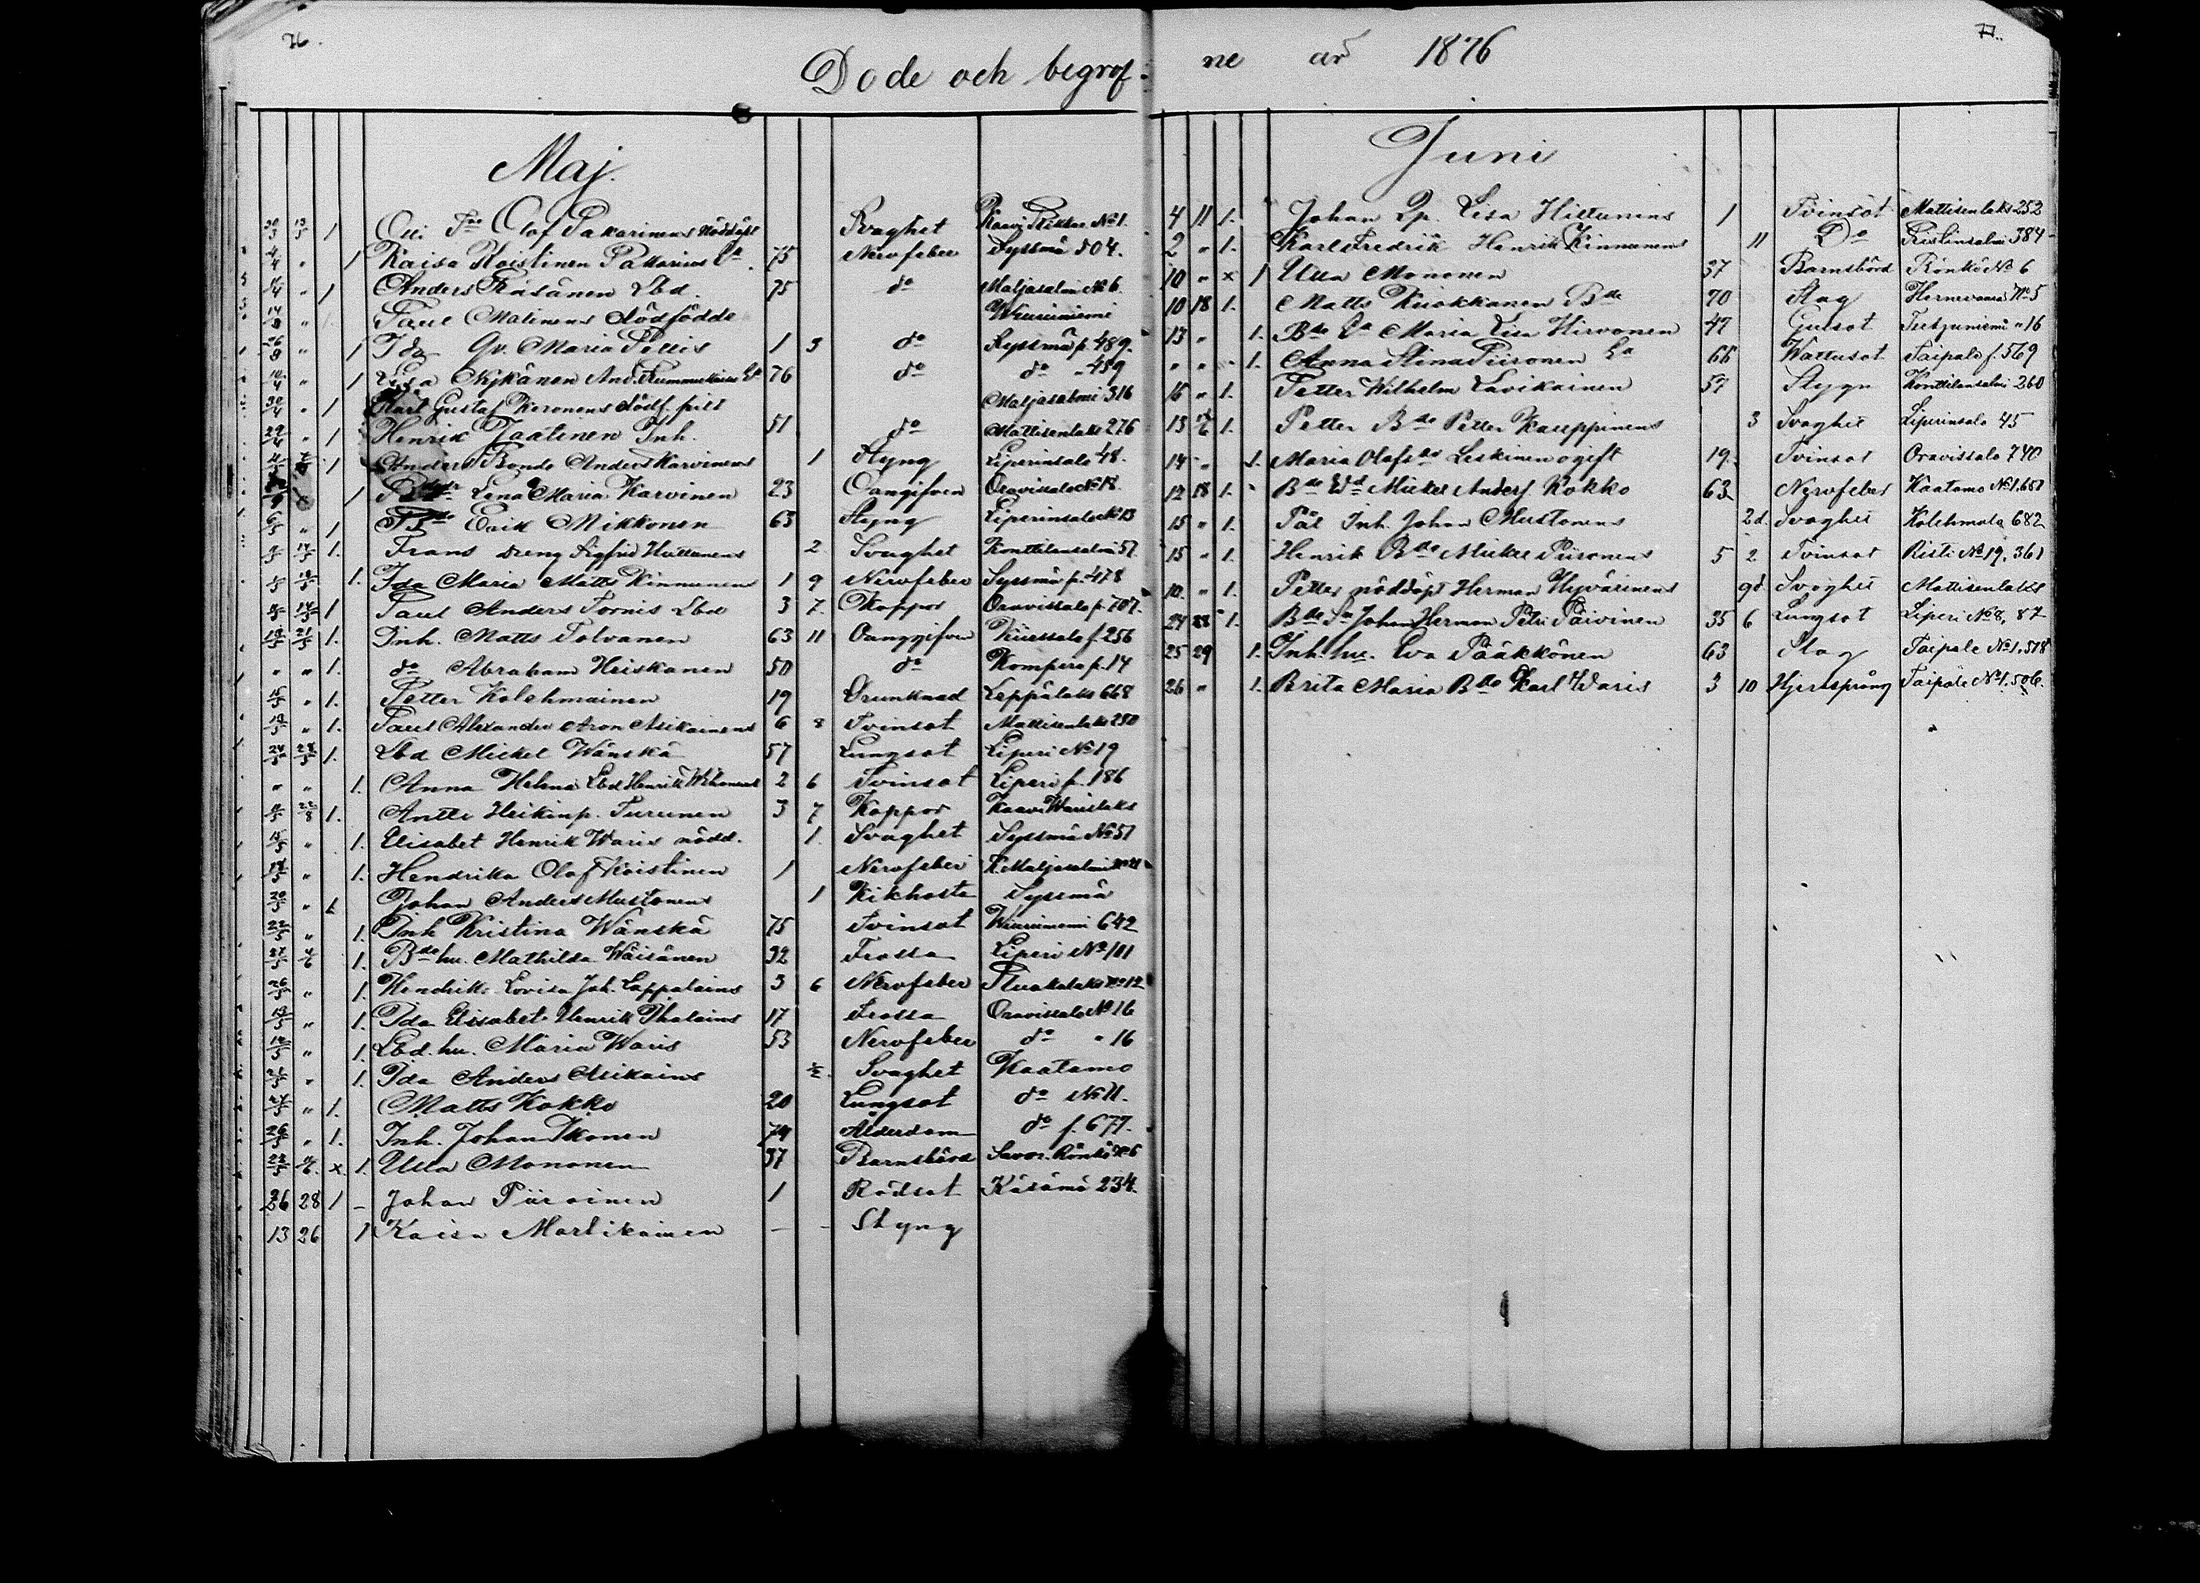 76.
Döde och begrof-
Maj.
30/3 13/5 1 Olli Olof Pakarinens nöddöpt Svaghet Kaavi N:o 1.
4/4 " 1 Kaisa Koistinen Pakarinens Ea 75 Nervfeber Syssmä 804.
16/4 " 1 Anders Räsänen Lbd. 75 do Maljasalmi N:o 6.
" Paul Malinens dödfödde Wiinirniemi
" 1 Ida Gv. Maria Pellis 1 3 do Syssmä p. 489.
" 1 Nykänen And. 76 do do " 459
30/4 " 1 Karl Gustaf Keronens dödf. pilt Maljasalmi 316
29/4 " 1 Henrik Taatinen Inh. 51 do Mattisenlaks 276
1 Anders Bonde Anders Karvinens 1 Styng Liperinsalo 48.
1 Lena Maria Karvinen 23 Oangifven Oravisalo N:o 18
6/5 " 1 Erik Mikkonen 63 Styng Liperinsalo N:o 13
1. Frans dreng Sigfrid Huttunens 2 Svaghet Konttilansalmi 57.
1. Ida Maria Matts Kinnunens 1 9 Nervfeber Syssmä p. 478
1 Paul Anders Tornis Lbd 3 7. Koppor Oravisalo p. 707.
21/5 1. Inh. Matts Tolvanen 63 11 Oanggifven Kiurssalo f. 256
" " 1. do Abraham Heiskanen 50 do Kompero p. 14
15/5 " 1. Petter Kolehmainen 19 Drunknad Leppälaks 668
" 1. Paul Alexander Aron Asikainens 6 8 Tvinsot Mattisenlaks 290
1. Lbd Mickel Wänskä 57 Lungsot Liperi N:o 19
" " 1. Anna Helena Lbd Henrik 2 6 Tvinsot Liperi f. 186
1. Antti Heikinp. Turunen 3 7 Koppor Kaavi Wäiulaks
" 1. Elisabet Henrik Waris nödd. 1. Svaghet Syssmä N:o 51
" 1. Hendrika Olof Koistinen 1 Nervfeber K. Maljasalmi N:o 21
20/5 " 1. Johan Anders Mustonens 1 Kikhosta Syssmä
22/5 " 1. Inh Kristina Wänskä 75 Tvinsot Wiinirniemi 642
27/5 4/6 1. Bde hu. Mathilda Wäisänen 32 Frossa Liperi N:o 101
26/5 " 1. Hendrik. Lovisa Joh. Lappalains 3 6 Nervfeber N:o 12
" 1. Ida Elisabet Henrik Ihalains 17 Frossa Oravisalo N:o 16
" 1. Lbd. hu. Maria Waris 53 Nervfeber do " 16
" 1. Ida Anders Asikains 1/2. Svaghet Kaatamo
" 1. Matts Kokko 20 Lungsot do N:o 11.
26/5 " 1. Inh. Johan Ikonen 74 Ålderdom do f. 677.
x 1. Ulla Mononen 37 Barnsbörd Savor. Rönkö N:o 6
26 28 1 - Johan Piiroinen 1 Rödsot Käsämä 234.
13 26 1 Kaisa Martikainen - - Styng
77.
ne år 1876
Juni
4 11 1. Johan Qp. Lisa Hiltunens 1 Tvinsot Mattisenlaks 252
2 " 1. Karl Fredrik Henrik Kinnunens 11 Do Ristinsalmi 384
10 " x 1 Ulla Mononen 37 Barnsbörd Rönkö N:o 6
10 18 1. Matts Kuokkanen Bde 70 Slag Hernevaara N:o 5
13 " 1. Bde Ea Maria Lisa Hirvonen 47 Gulsot " 16
" " 1. Anna Stina Piironen Ea 66 Wattusot Taipale f. 569
15 " 1. Petter Wilhelm Lavikainen 57 Stygn Konttilansalmi 260
13 1. Petter Bde Petter Kauppinens 3 Svaghet Liperinsalo 45
14 " 1. Maria Olofsdr Leskinen ogift 19. Tvinsot Oravissalo 740
12 18 1. Bde Mickel Anders Kokko 63 Nervfeber Kaatamo N:o 1. 651
15 " 1. Pål Inh. Johan Mustonens 2 d. Svaghet Kolehmala 682
15 " 1. Henrik Bde Mickel Piironens 5 2 Tvinsot Risti N:o 19, 361
10 " 1. Petter nöddöpt Herman Hyvärinens 9 d. Svaghet Mattisenlaks
24 1. Bde So Johan Herman Petri Päivinen 35 6 Lungsot Liperi N:o 8, 87
25 29 1. Inh. hu. Eva Pääkkönen 63 Slag Taipale N:o 1. 518
26 " 1. Brita Maria Bde Karl Waris 3 10 Hjertsprång Taipale N:o 1. 506.